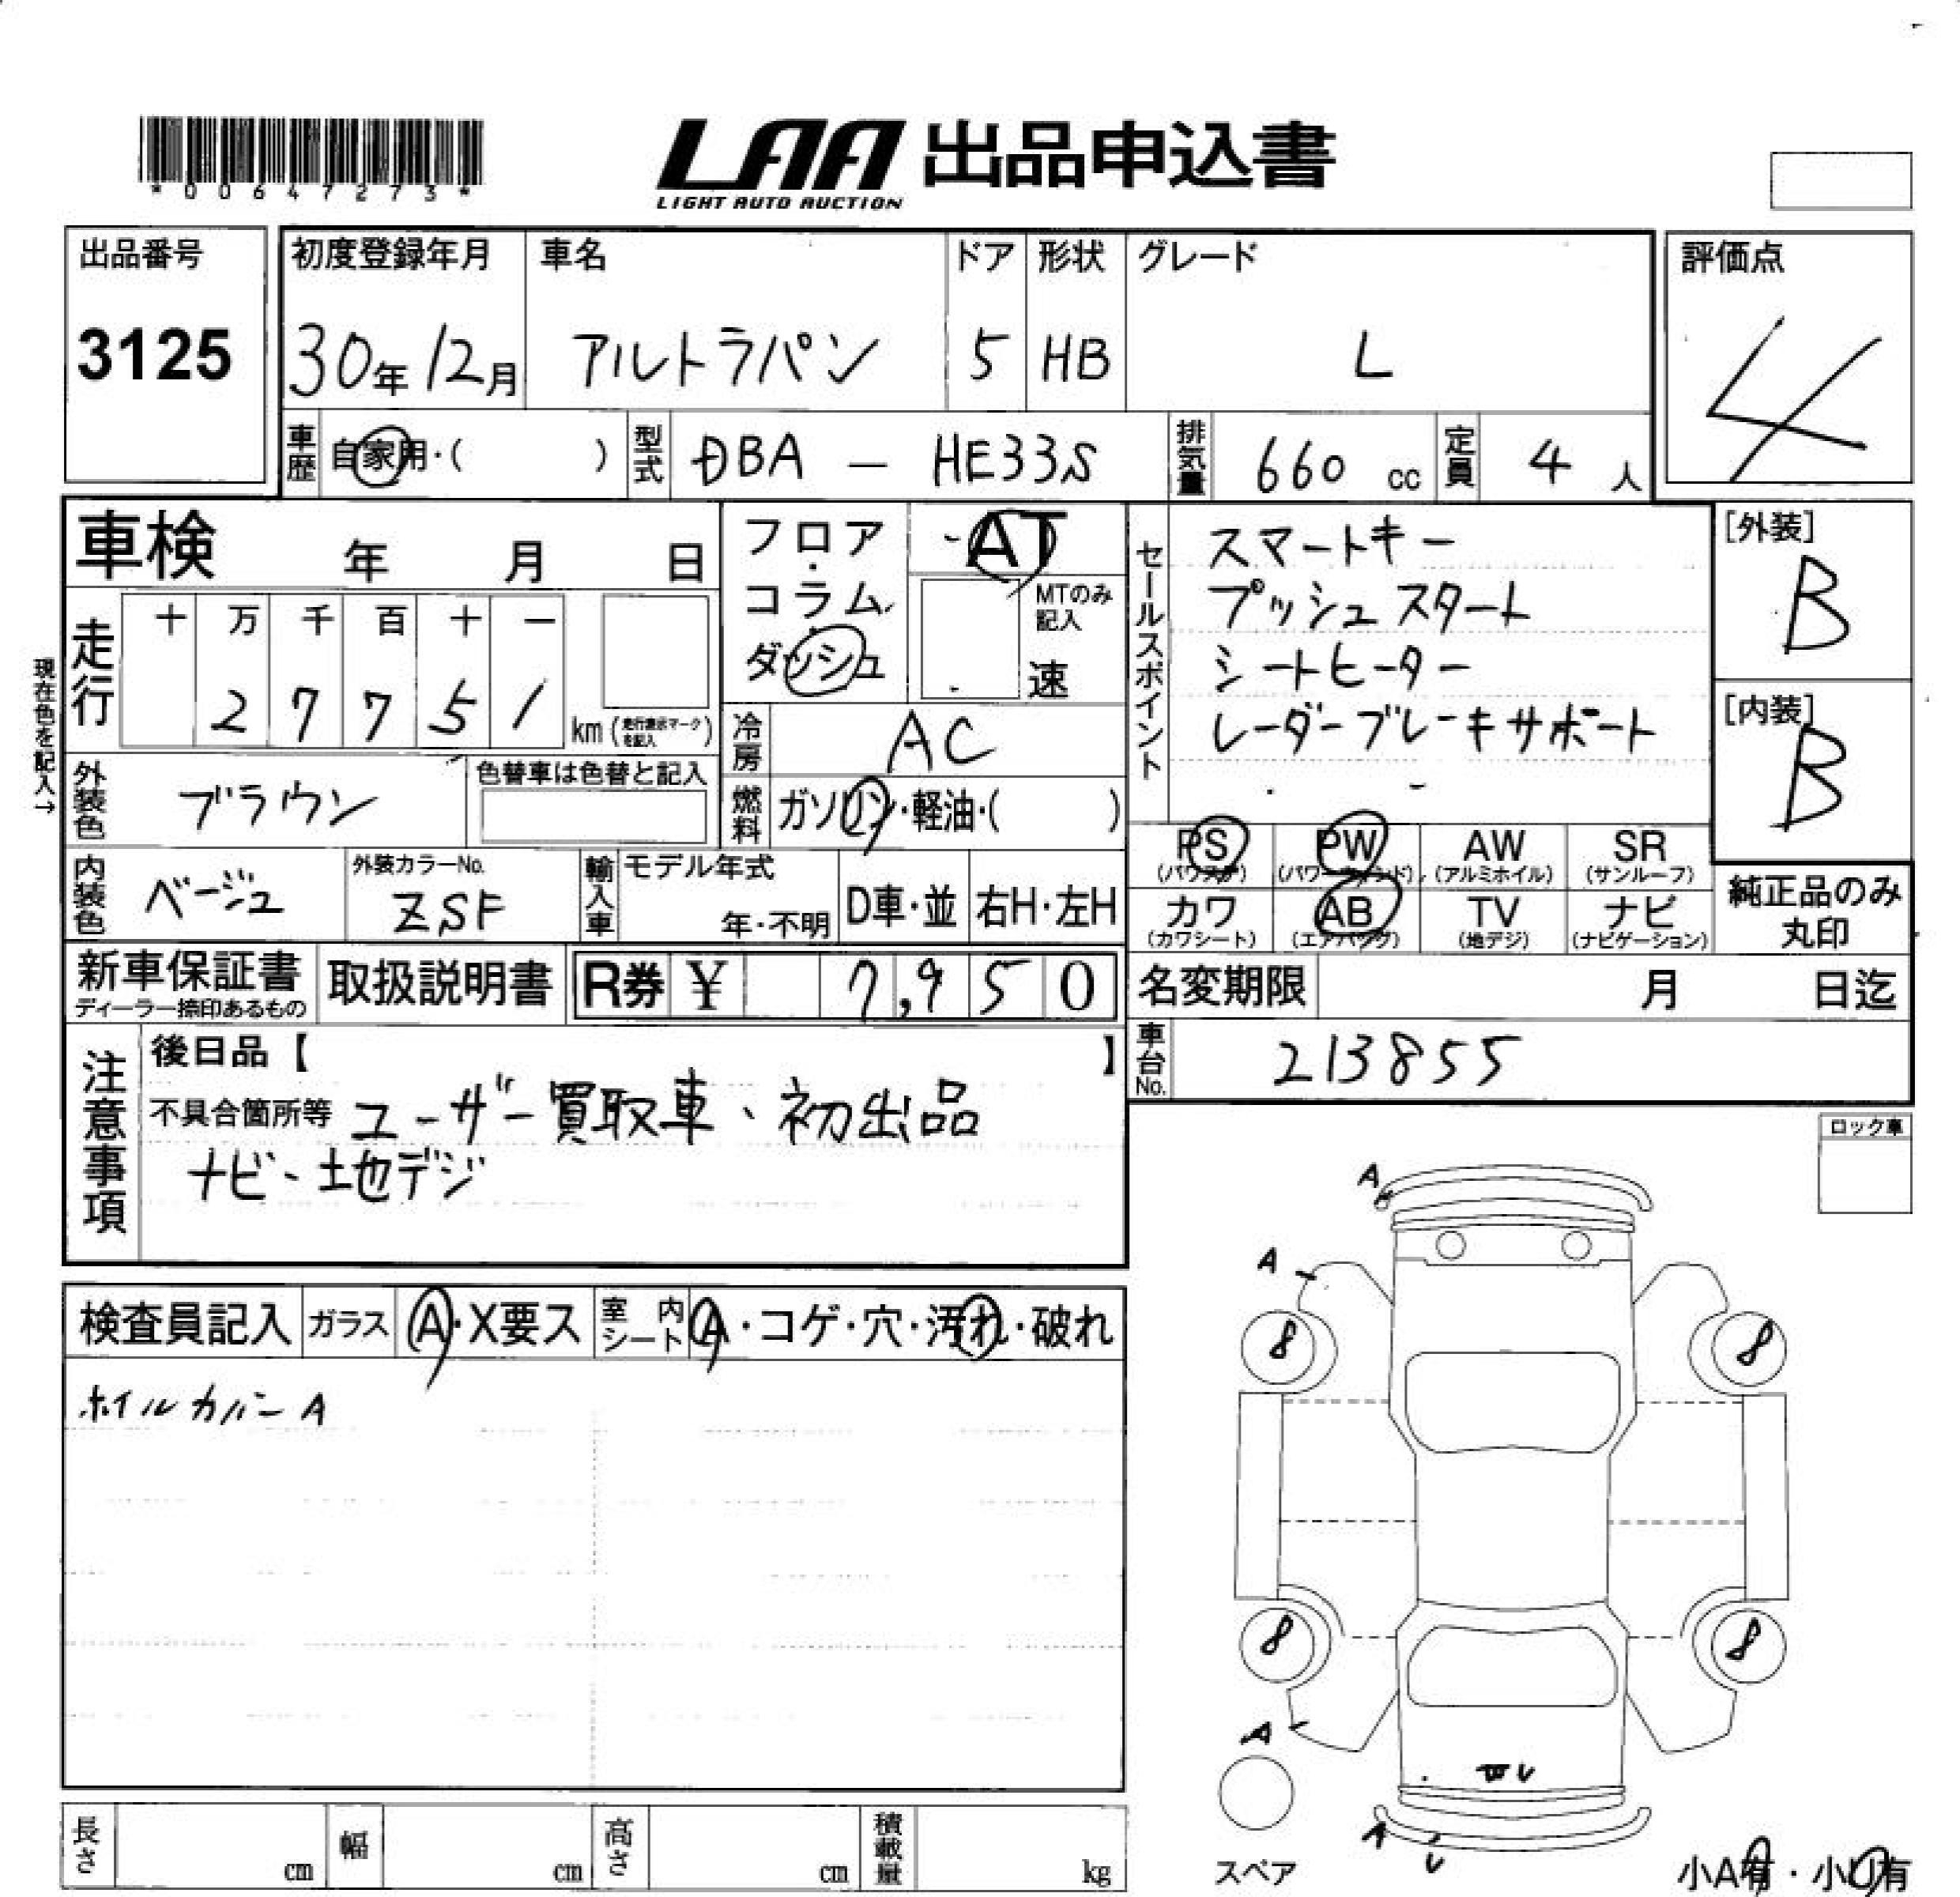 *00647273*
LAA 出品申込書
LIGHT AUTO AUCTION
出品番号 初度登録年月 車名 ドア 形状 グレード 評価点
3125 30年12月 アルトラパン 5 HB L 4
車歴 自家用・( ) 型式 DBA — HE33S 排気量 660 cc 定員 4 人
車検 年 月 日
フロア・コラム・ダッシュ
AT
MTのみ記入
速
セールスポイント
スマートキー
プッシュスタート
シートヒーター
レーダーブレーキサポート
[外装]
B
[内装]
B
現在色を記入→
走行 十 万 千 百 十 一
2 7 7 5 1 km (走行表示マークを記入)
冷房 AC
外装色 ブラウン 色替車は色替と記入
燃料 ガソリン・軽油・( )
PS (パワステ) PW (パワーウィンド) AW (アルミホイル) SR (サンルーフ)
カワ (カワシート) AB (エアバッグ) TV (地デジ) ナビ (ナビゲーション)
純正品のみ
丸印
内装色 ベージュ 外装カラーNo. ZSF 輸入車 モデル年式 年・不明 D車・並 右H・左H
新車保証書 取扱説明書 R券 ¥ 7,950
ディーラー捺印あるもの
名変期限 月 日迄
車台No. 213855
注意事項
後日品【 】
不具合箇所等 ユーザー買取車、初出品
ナビ、地デジ
ロック車
検査員記入 ガラス A・X要ス 室内シート A・コゲ・穴・汚れ・破れ
ホイルカバーA
A
A
8 8
8 8
A
A
U
スペア
小A有・小U有
長さ cm 幅 cm 高さ cm 積載量 kg